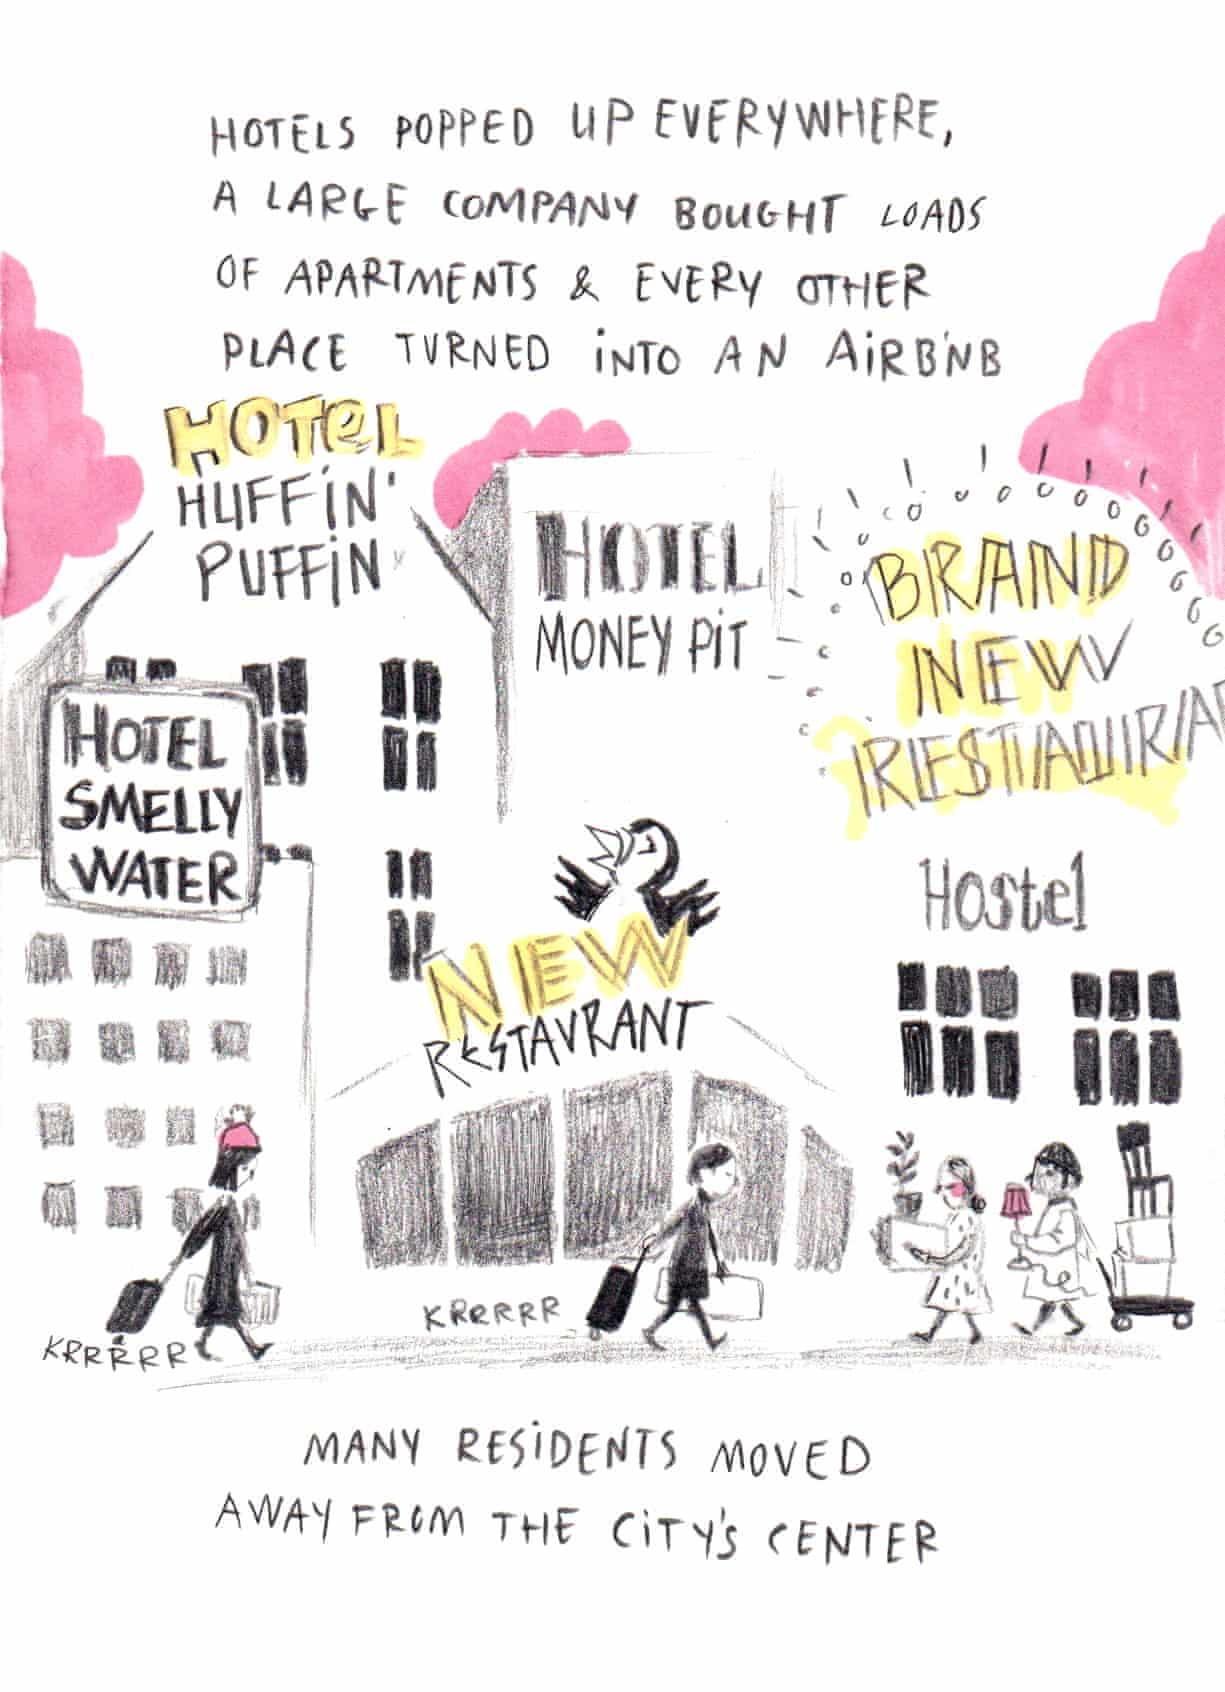 HOTELS POPPED UP EVERYWHERE,
A LARGE COMPANY BOUGHT LOADS
OF APARTMENTS & EVERY OTHER
PLACE TURNED iNTO AN AiRB'NB
HOTeL
HUFFiN'
PUFFiN
HOTEL
MONEY PiT
BRAND
NEW
RESTAURA
HOTEL
SMELLY
WATER
Hostel
NEW
RESTAURANT
KRRRRR
KRRRRR
MANY RESiDENTS MOVED
AWAY FROM THE CiTY'S CENTER